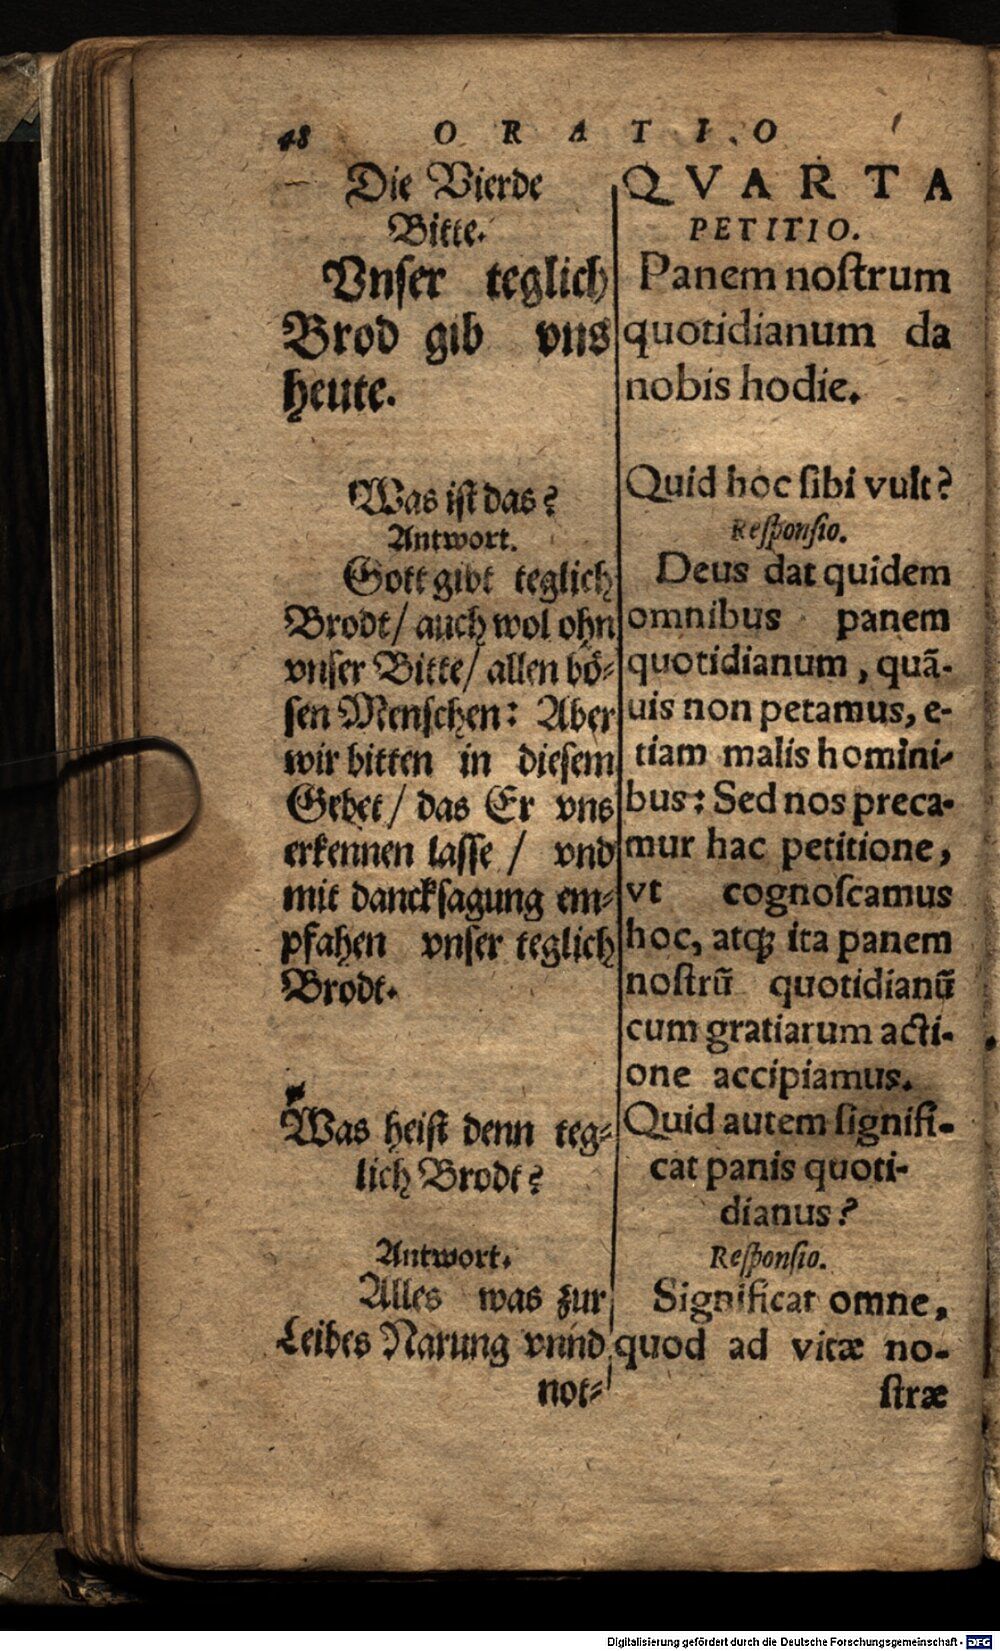 48 ORATIO
Die Vierde
Bitte.
Vnser teglich
Brod gib vns
heute.
Was ist das?
Antwort.
Gott gibt teglich
Brodt/ auch wol ohn
vnser Bitte/ allen bö⸗
sen Menschen: Aber
wir bitten in diesem
Gebet/ das Er vns
erkennen lasse / vnd
mit dancksagung em⸗
pfahen vnser teglich
Brodt.
Was heist denn teg⸗
lich Brodt?
Antwort.
Alles was zur
Leibes Narung vnnd
not⸗
QVARTA
PETITIO.
Panem noſtrum
quotidianum da
nobis hodie.
Quid hoc ſibi vult?
Reſponſio.
Deus dat quidem
omnibus panem
quotidianum, quã-
uis non petamus, e-
tiam malis homini-
bus: Sed nos preca-
mur hac petitione,
vt cognoſcamus
hoc, atqꝫ ita panem
noſtrũ quotidianũ
cum gratiarum acti-
one accipiamus.
Quid autem ſignifi-
cat panis quoti-
dianus?
Reſponſio.
Significat omne,
quod ad vitæ no-
ſtræ
Digitalisierung gefördert durch die Deutsche Forschungsgemeinschaft - DFG